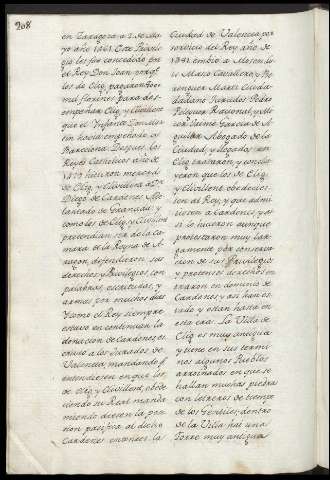 208
en Tarazona a 2 de Ma
yo año 1481. Este Privile
gio les fue concedido por
el Rey Don Juan porq.e
los de Elig. pagaron
mil florines para des=
empeñar Elig. y Clivillen
que el Infante Don
havia empeñado a
Barcelona. Despues los
Reyes Catholicos año de
hicieron merced de
Elig. y Clivillen a Dn
Diego de Cardenas Ade
lantado de Granada y
como los de Elig. y Clivillen
pretendian ser de la Ca
mara de la Reyna de A=
ragon, defendieron sus
derechos y Privilegios, con
palabras, escrituras, y
armas por muchos dias
y como el Rey siempre
estuvo en continuar la
donacion de Cardenas es
crivio a los Jurados de
Valencia mandando q.e
entendiesen en que los
de Elig. y Clivillent, obede
ciendo su Real manda
miento diesen la po
sesion pacifica al dicho
Cardenas entonces la
Ciudad de Valencia por
servicio del Rey año de
1481 embio a
do Masco Cavallero, y Be
renguer Marti Ciuda=
dadano Jurados Pedro
Pelliger Racional, y
sen Jaime Garcia de A=
guilar Abogado de la
Ciudad, y llegados en
Elig. trataron, y conclu
yeron que los de Elig.
y Clivillent obedecies=
sen al Rey, y que admi
tiesen a Cardenes, y as
si lo hicieron aunque
protestaron muy lar
gamente por conserva
cion de sus Privilegios
y pretensos derechos en
traron en dominio de
Cardenes y assi han es
tado y estan hasta en
esta era. La Villa de
Elig. es muy antigua
y tiene en sus termi
nos algunos Pueblos
arruinados en que se
hallan muchas piedras
con letreros de tiempo
de los Gentiles, dentro
de la Villa hai una
Torre muy antigua